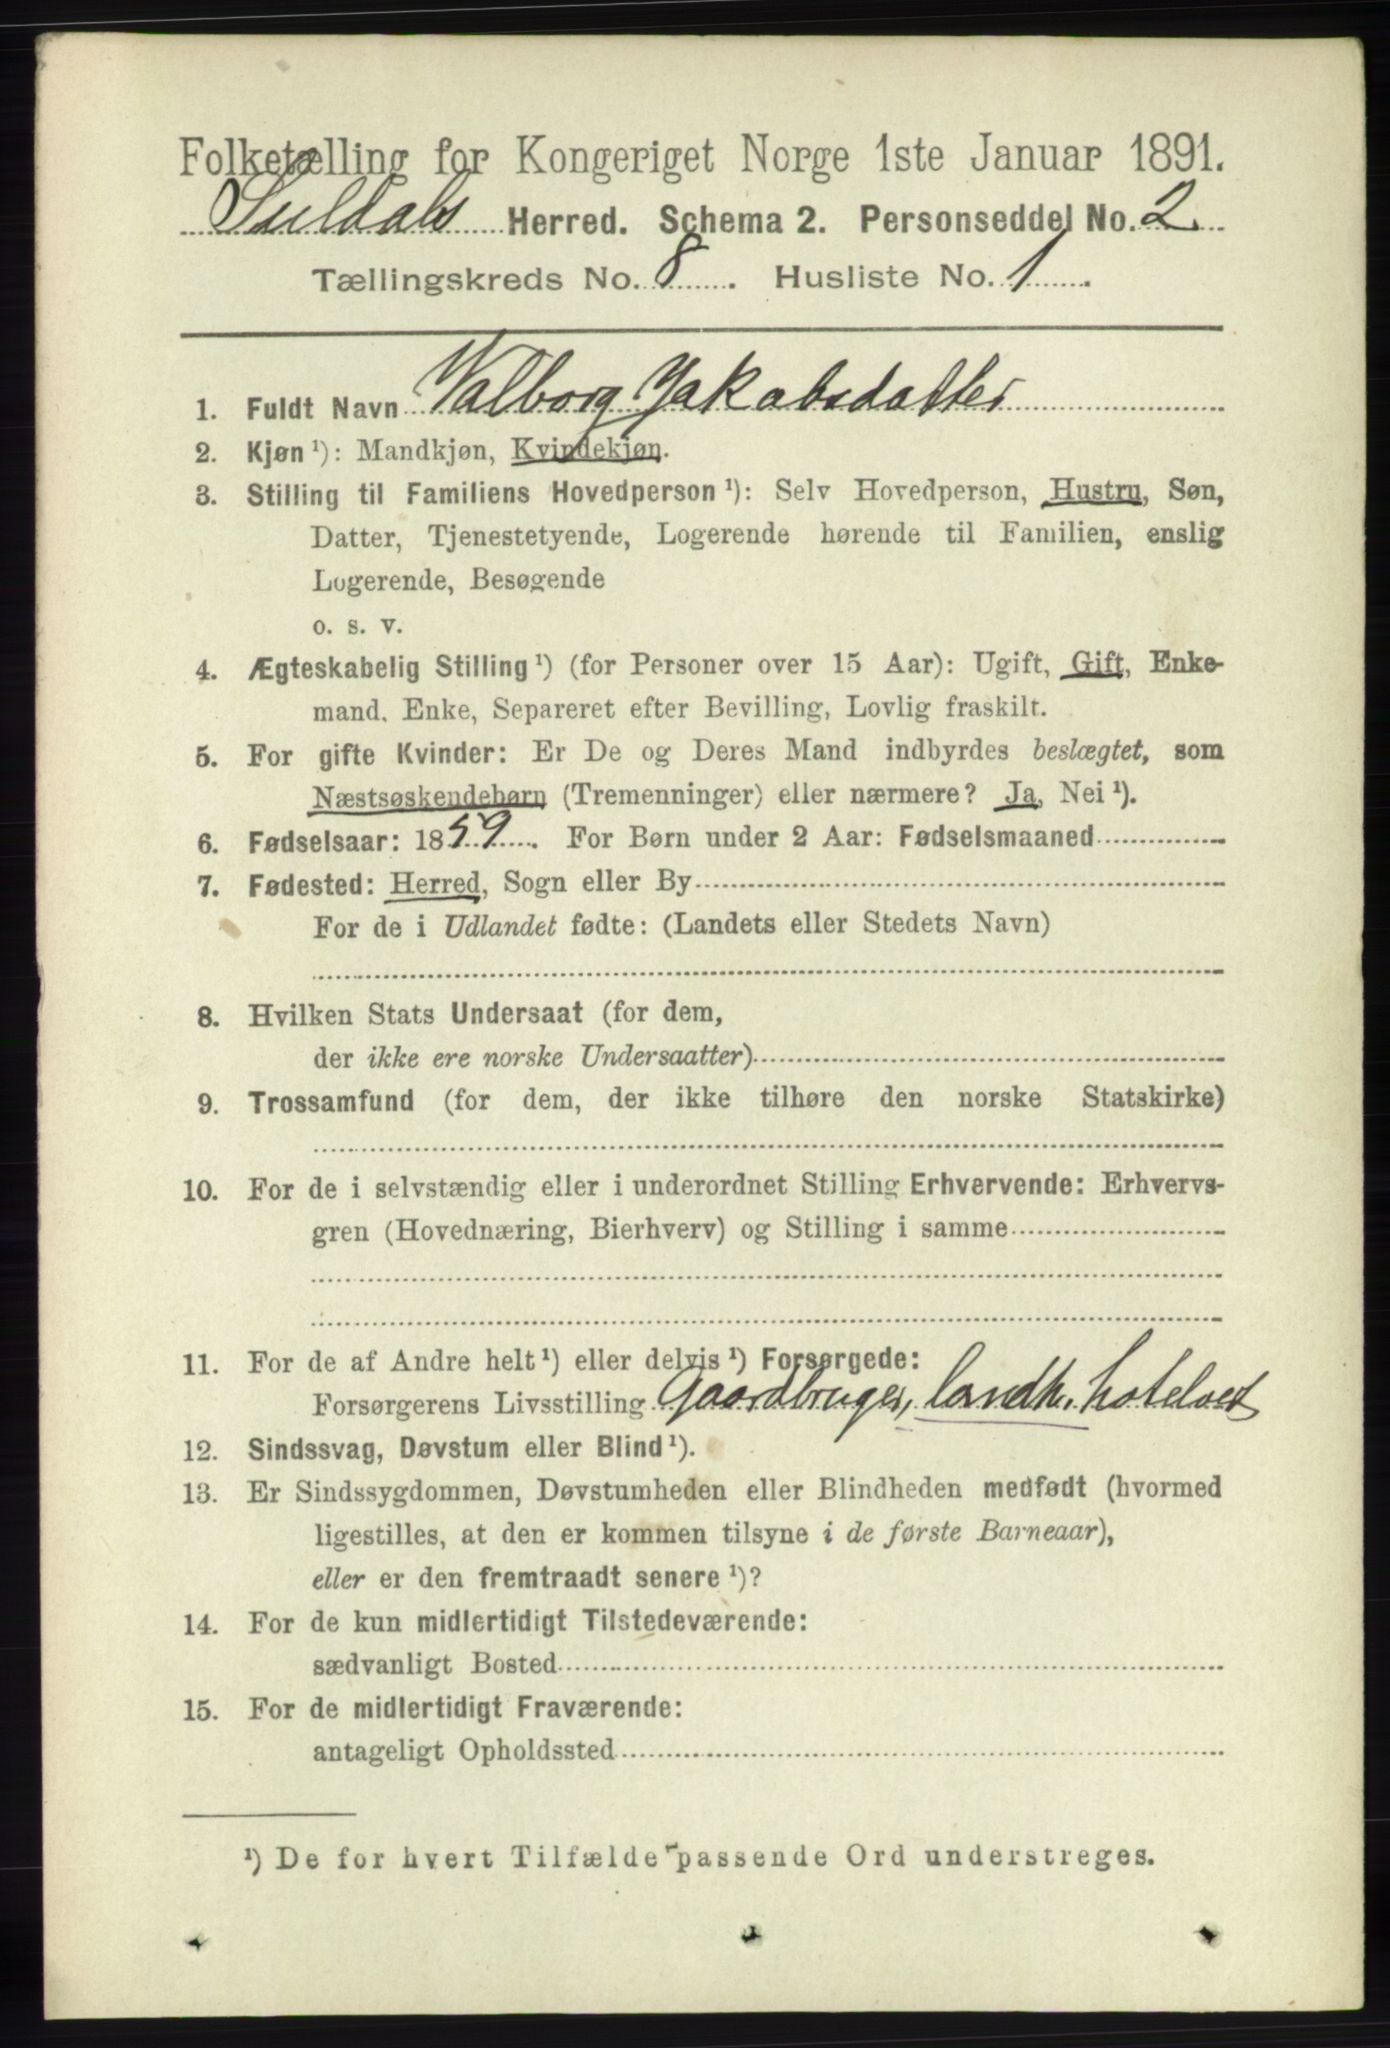 Folketælling for Kongeriget Norge 1ste Januar 1891.
Suldals Herred. Schema 2. Personseddel No. 2
Tællingskreds No. 8. Husliste No. 1.
1. Fuldt Navn Valborg Jakobsdatter
2. Kjøn ¹): Mandkjøn, Kvindekjøn.
3. Stilling til Familiens Hovedperson ¹): Selv Hovedperson, Hustru, Søn,
Datter, Tjenestetyende, Logerende hørende til Familien, enslig
Logerende, Besøgende
o. s. v.
4. Ægteskabelig Stilling ¹) (for Personer over 15 Aar): Ugift, Gift, Enke-
mand, Enke, Separeret efter Bevilling, Lovlig fraskilt.
5. For gifte Kvinder: Er De og Deres Mand indbyrdes beslægtet, som
Næstsøskendebørn (Tremenninger) eller nærmere? Ja, Nei ¹).
6. Fødselsaar: 1859. For Børn under 2 Aar: Fødselsmaaned
7. Fødested: Herred, Sogn eller By
For de i Udlandet fødte: (Landets eller Stedets Navn)
8. Hvilken Stats Undersaat (for dem,
der ikke ere norske Undersaatter)
9. Trossamfund (for dem, der ikke tilhøre den norske Statskirke)
10. For de i selvstændig eller i underordnet Stilling Erhvervende: Erhvervs-
gren (Hovednæring, Bierhverv) og Stilling i samme
11. For de af Andre helt ¹) eller delvis ¹) Forsørgede:
Forsørgerens Livsstilling Gaardbruger, landh. hotelvert
12. Sindssvag, Døvstum eller Blind ¹).
13. Er Sindssygdommen, Døvstumheden eller Blindheden medfødt (hvormed
ligestilles, at den er kommen tilsyne i de første Barneaar),
eller er den fremtraadt senere ¹)?
14. For de kun midlertidigt Tilstedeværende:
sædvanligt Bosted
15. For de midlertidigt Fraværende:
antageligt Opholdssted
¹) De for hvert Tilfælde passende Ord understreges.